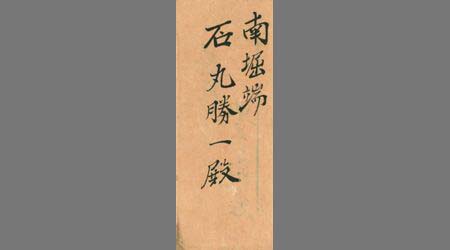 南堀端
石丸勝一殿